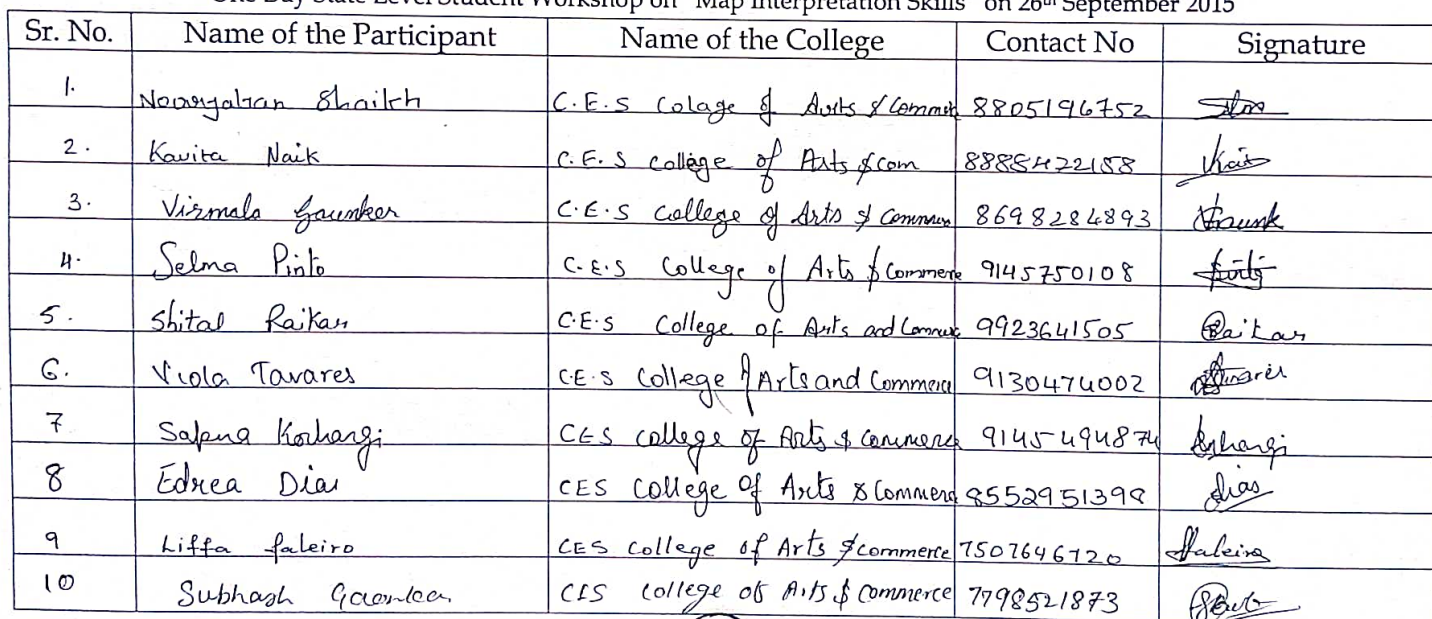 One Day State Level Student Workshop on "Map Interpretation Skills" on 26th September 2015
Sr. No. Name of the Participant Name of the College Contact No Signature
1. Noorjahan Shaikh C.E.S Colage of Arts & Commer 8805196752
2. Kavita Naik C.E.S college of Arts & com 8888422158
3. Virmala Gaunker C.E.S College of Arts & Commer 8698284893 Gaunk
4. Selma Pinto C.E.S College of Arts & Commerce 9145750108
5. Shital Raikar C.E.S College of Arts and Commerce 9923641505 Raikar
6. Viola Tavares C.E.S College of Arts and Commerce 9130474002
7 Sapna Korhangi CES College of Arts & Commerce 9145494874
8 Edrea Dias CES College of Arts & Commerce 8552951398 Dias
9 Liffa faleiro CES College of Arts & commerce 7507646720 Faleiro
10 Subhash Gaonkar CES College of Arts & Commerce 7798521873